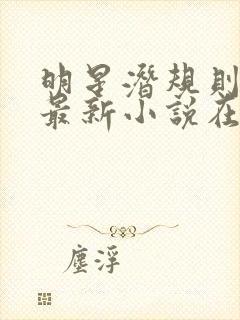 明星潛規則
最新小說在
塵浮